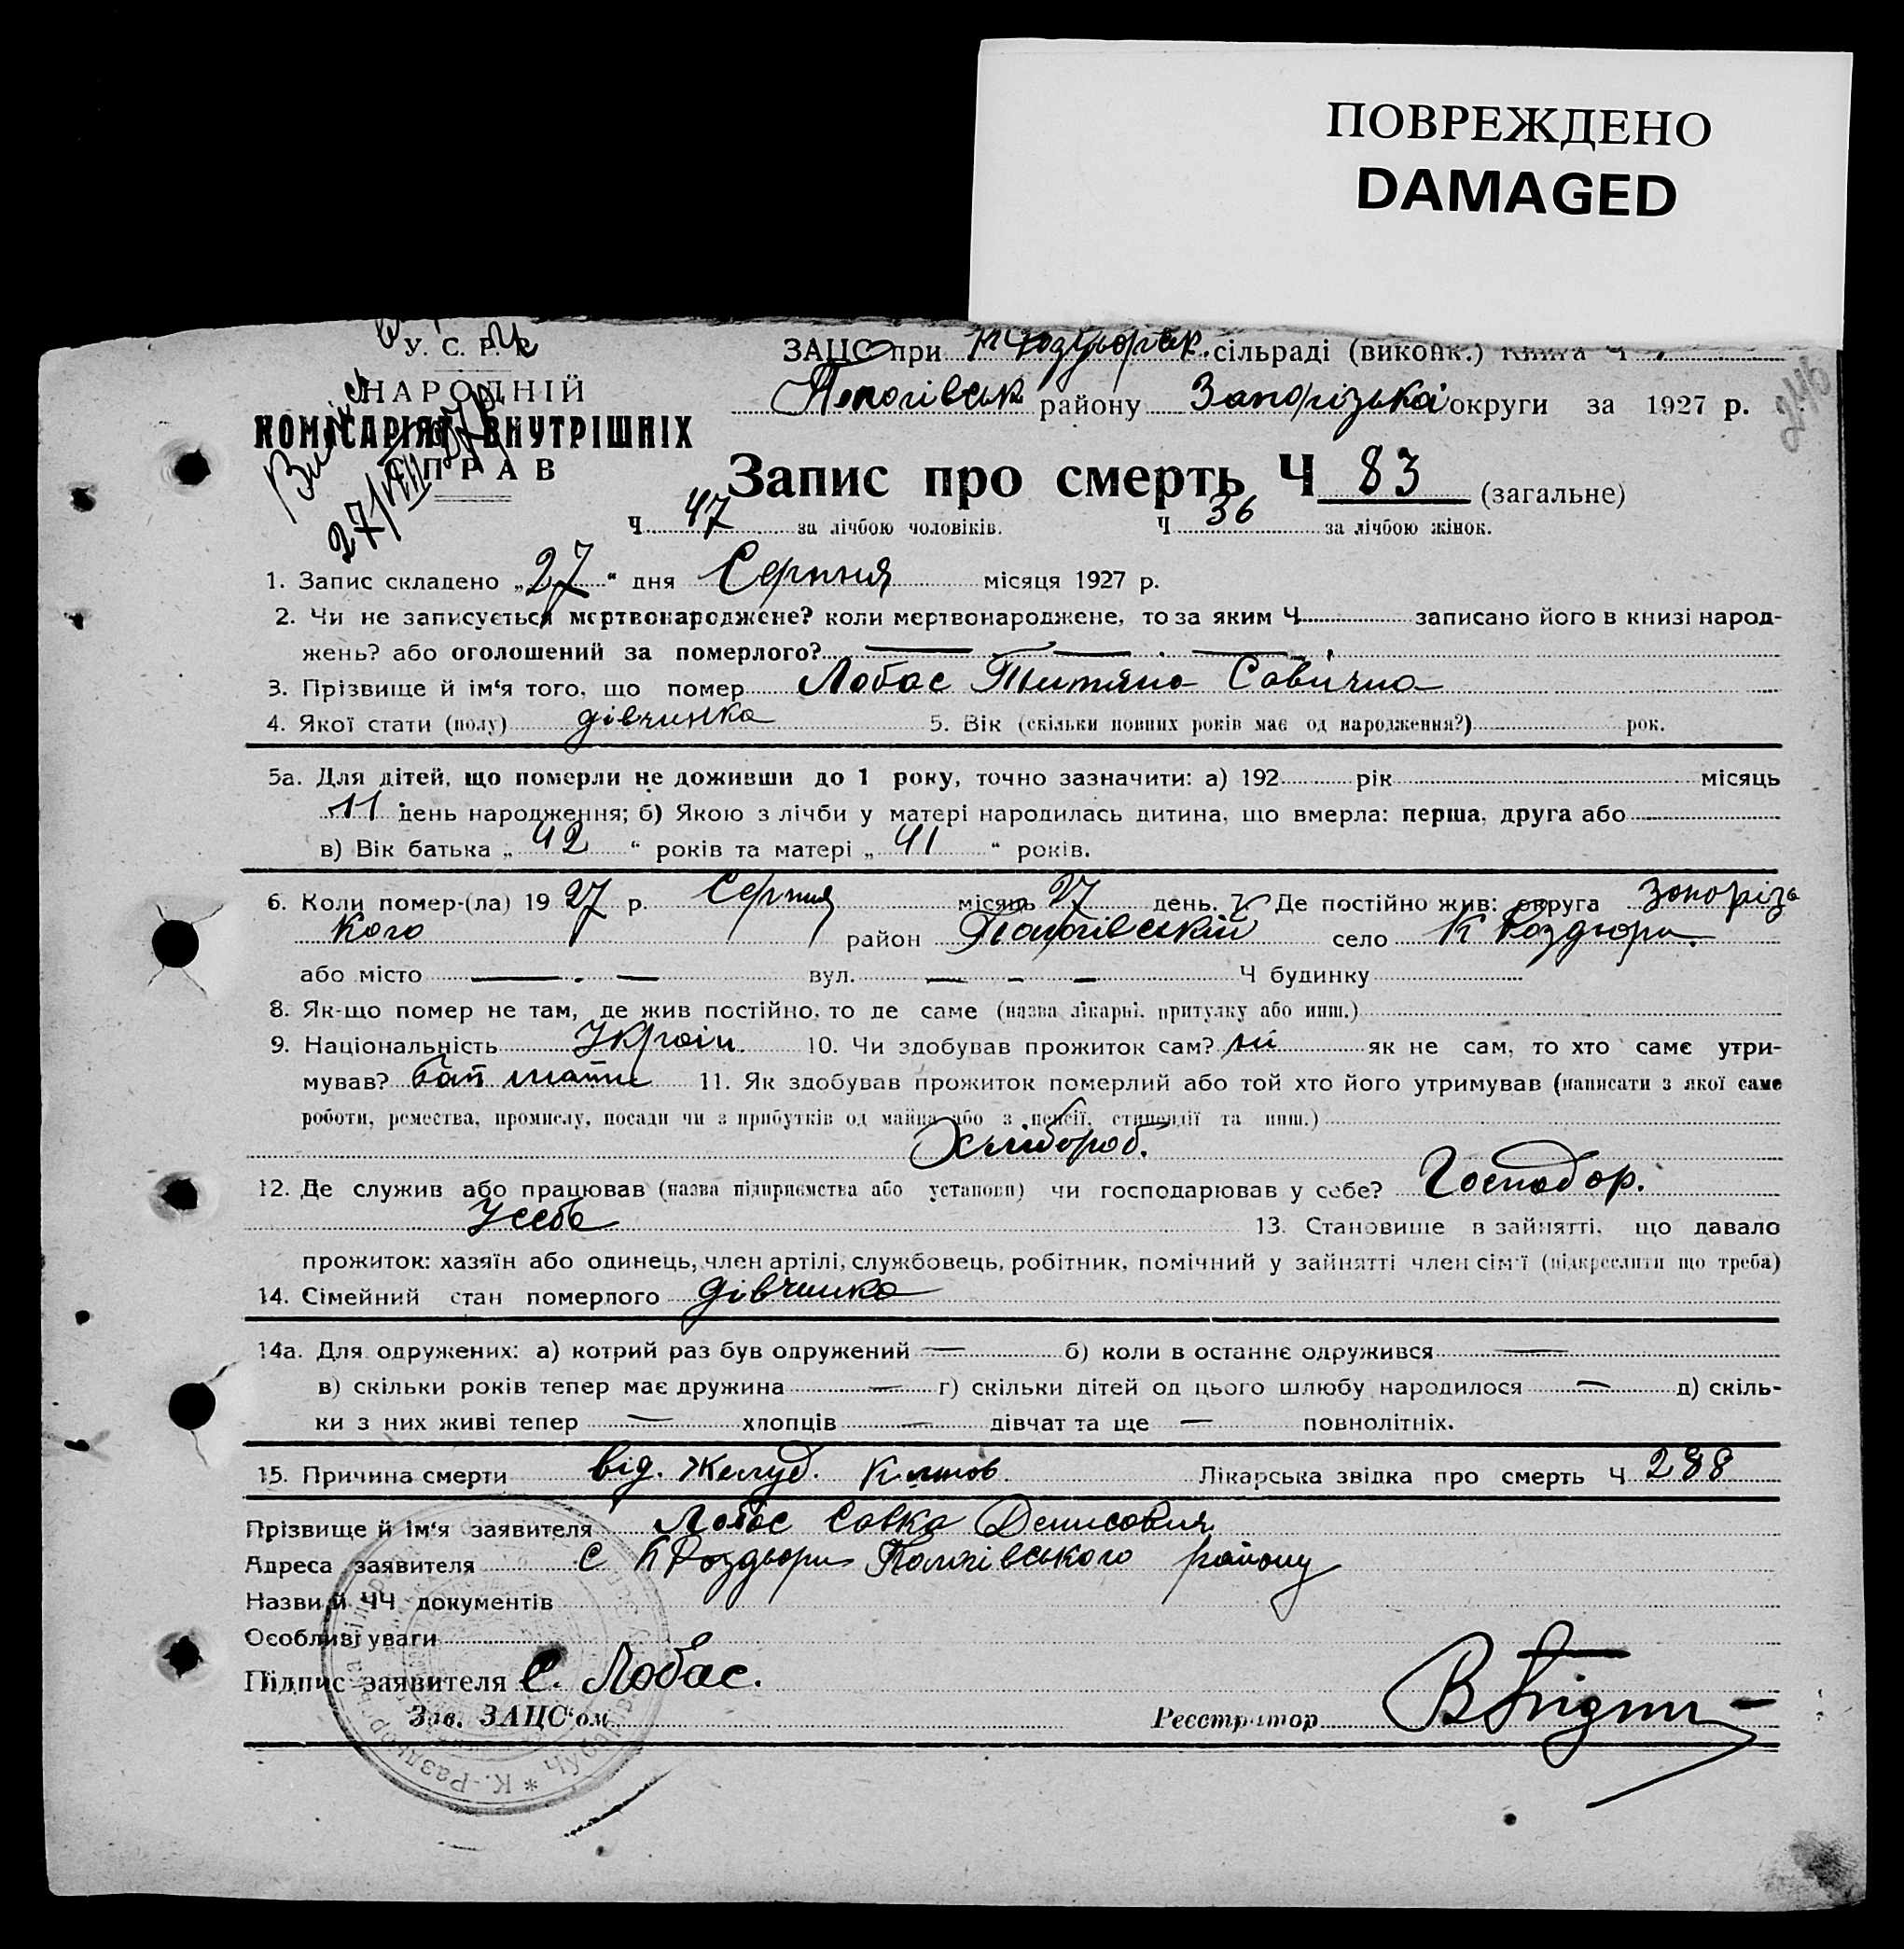 ПОВРЕЖДЕНО
DAMAGED
У. С. Р. Р.
ЗАЦС при сільраді (виконк.) Книга Ч
НАРОДНІЙ
Пологівськ району Запорізька округи за 1927 р.
246
КОМІСАРІЯТ ВНУТРІШНІХ
ПРАВ
27/VIII 27
Запис про смерть Ч 83 (загальне)
Ч 47 за лічбою чоловіків. Ч 36 за лічбою жінок.
1. Запис складено „27“ дня Серпня місяця 1927 р.
2. Чи не записується мертвонароджене? коли мертвонароджене, то за яким Ч записано його в книзі народ-
жень? або оголошений за померлого? — — —
3. Прізвище й ім‘я того, що помер Лобас Титяна Савична
4. Якої стати (полу) дівчинка 5. Вік (скільки повних років має од народження?) рок.
5а. Для дітей, що померли не доживши до 1 року, точно зазначити: а) 192 рік місяць
11 день народження; б) Якою з лічби у матері народилась дитина, що вмерла: перша, друга або
в) Вік батька „42“ років та матері „41“ років.
6. Коли помер-(ла) 1927 р. Серпня місяць 27 день. 7. Де постійно жив: округа Запоріз
кого район Пологівський село К Роздюри.
або місто — . — вул. — — — Ч будинку
8. Як-що помер не там, де жив постійно, то де саме (назва лікарні, притулку або инш.)
9. Національність Україн. 10. Чи здобував прожиток сам? ні як не сам, то хто саме утри-
мував? Бат мати 11. Як здобував прожиток померлий або той хто його утримував (написати з якої саме
роботи, ремества, промислу, посади чи з прибутків од майна або з пенсії, стипендії та инш.)
Хлібороб.
12. Де служив або працював (назва підприємства або установи) чи господарював у себе? Господар.
У себе 13. Становище в зайнятті, що давало
прожиток: хазяїн або одинець, член артілі, службовець, робітник, помічний у зайнятті член сім‘ї (підкреслити що треба)
14. Сімейний стан померлого дівчинка
14а. Для одружених: а) котрий раз був одружений — б) коли в останнє одружився —
в) скільки років тепер має дружина — г) скільки дітей од цього шлюбу народилося — д) скіль-
ки з них живі тепер — хлопців — дівчат та ще — повнолітніх.
15. Причина смерти від. Желуд. Лікарська звідка про смерть Ч 288
Прізвище й ім‘я заявителя Лобас Савка Денисович
Адреса заявителя С К Роздьори Пологівського району
Назви й ЧЧ документів
Особливі уваги
Підпис заявителя С. Лобас.
Зав. ЗАЦС‘ом Реєстратор
* К.-Раздюрська